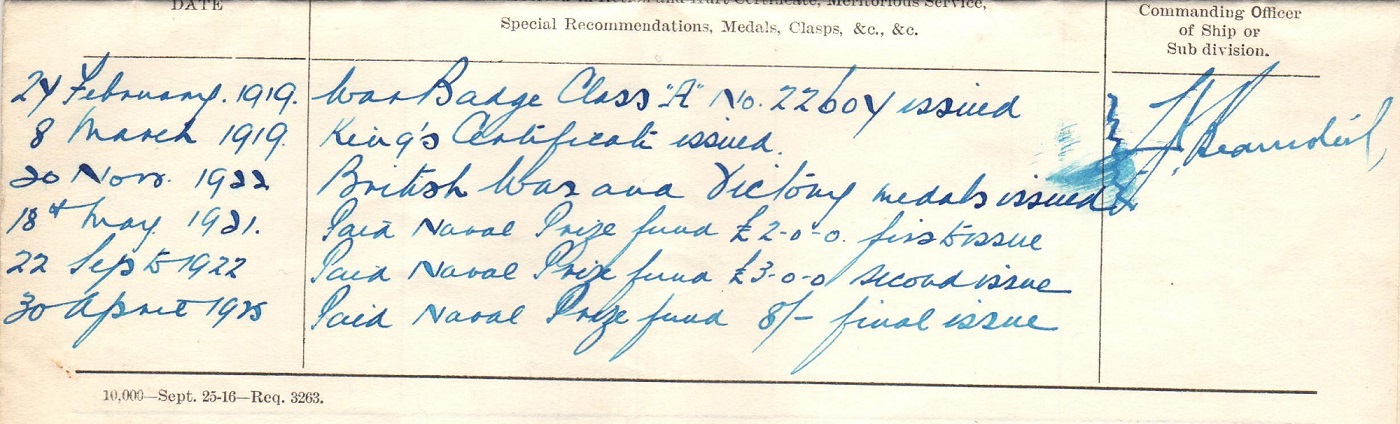 DATE
and Hurt Certificate, Meritorious Service,
Special Recommendations, Medals, Clasps, &c., &c.
Commanding Officer
of Ship or
Sub division.
24 February. 1919. War Badge Class "A" No. 22604 issued
8 March 1919. King's Certificate issued.
20 Nov. 1922 British War and Victory medals issued
18th May 1921. Paid Naval Prize fund £2-0-0. first issue
22 Sept 1922 Paid Naval Prize fund £3-0-0 second issue
30 April 1925 Paid Naval Prize fund 8/- final issue
10,000—Sept. 25-16—Req. 3263.